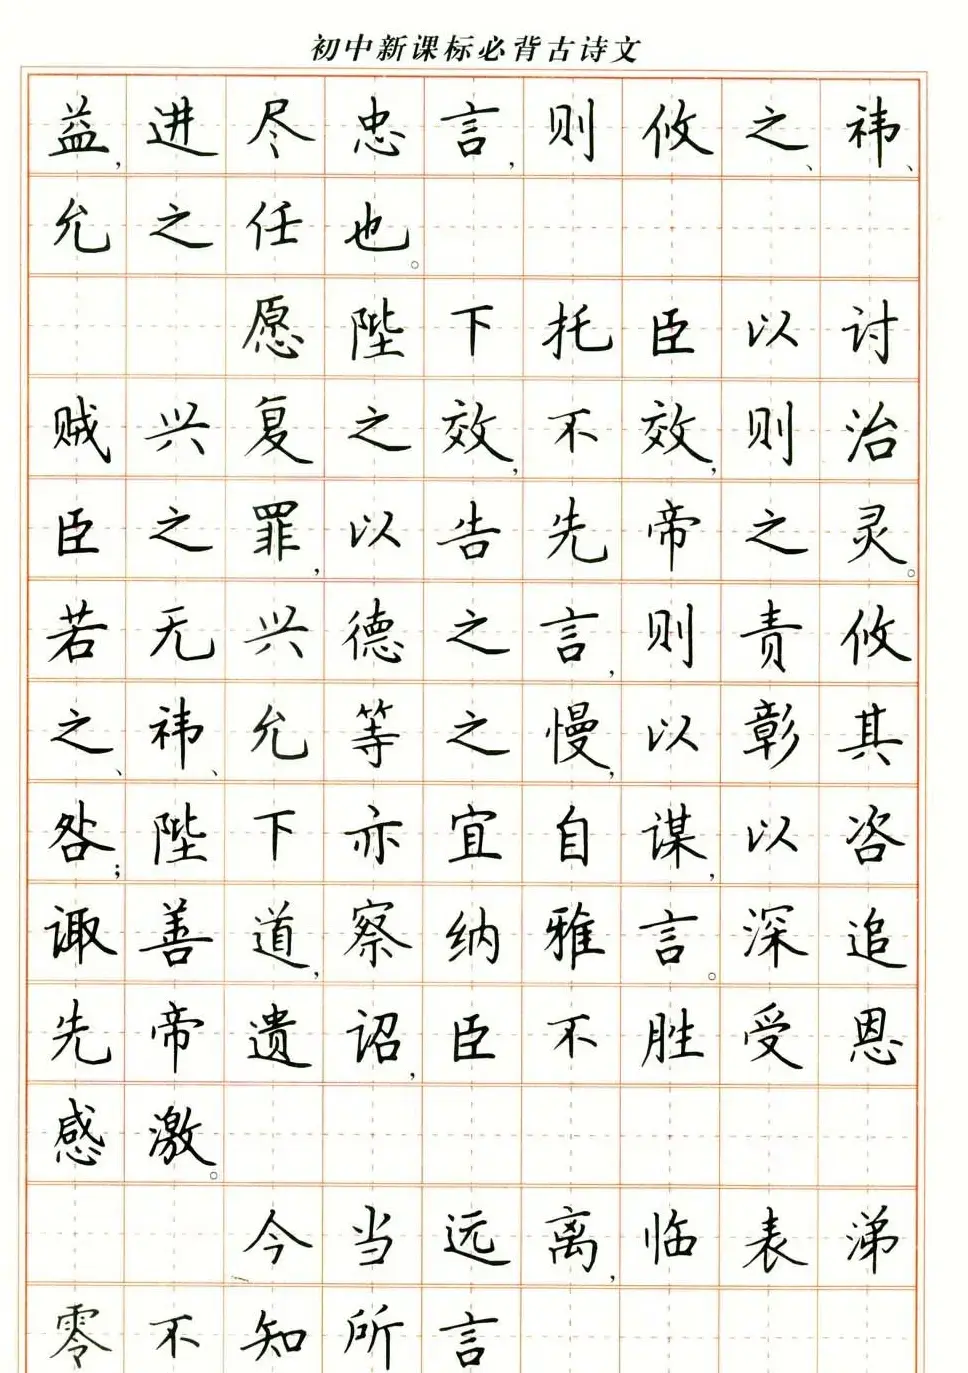 初中新课标必背古诗文
益,进尽忠言,则攸之、祎、
允之任也。
愿陛下托臣以讨
贼兴复之效,不效,则治
臣之罪,以告先帝之灵。
若无兴德之言,则责攸
之、祎、允等之慢,以彰其
咎;陛下亦宜自谋,以咨
诹善道,察纳雅言。深追
先帝遗诏,臣不胜受恩
感激。
今当远离,临表涕
零不知所言